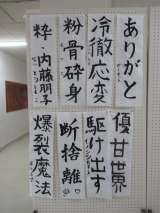 ありがと
冷徹応変
粉骨砕身
粋・内藤朋子
優甘世界
駆け出す
断捨離
爆裂魔法